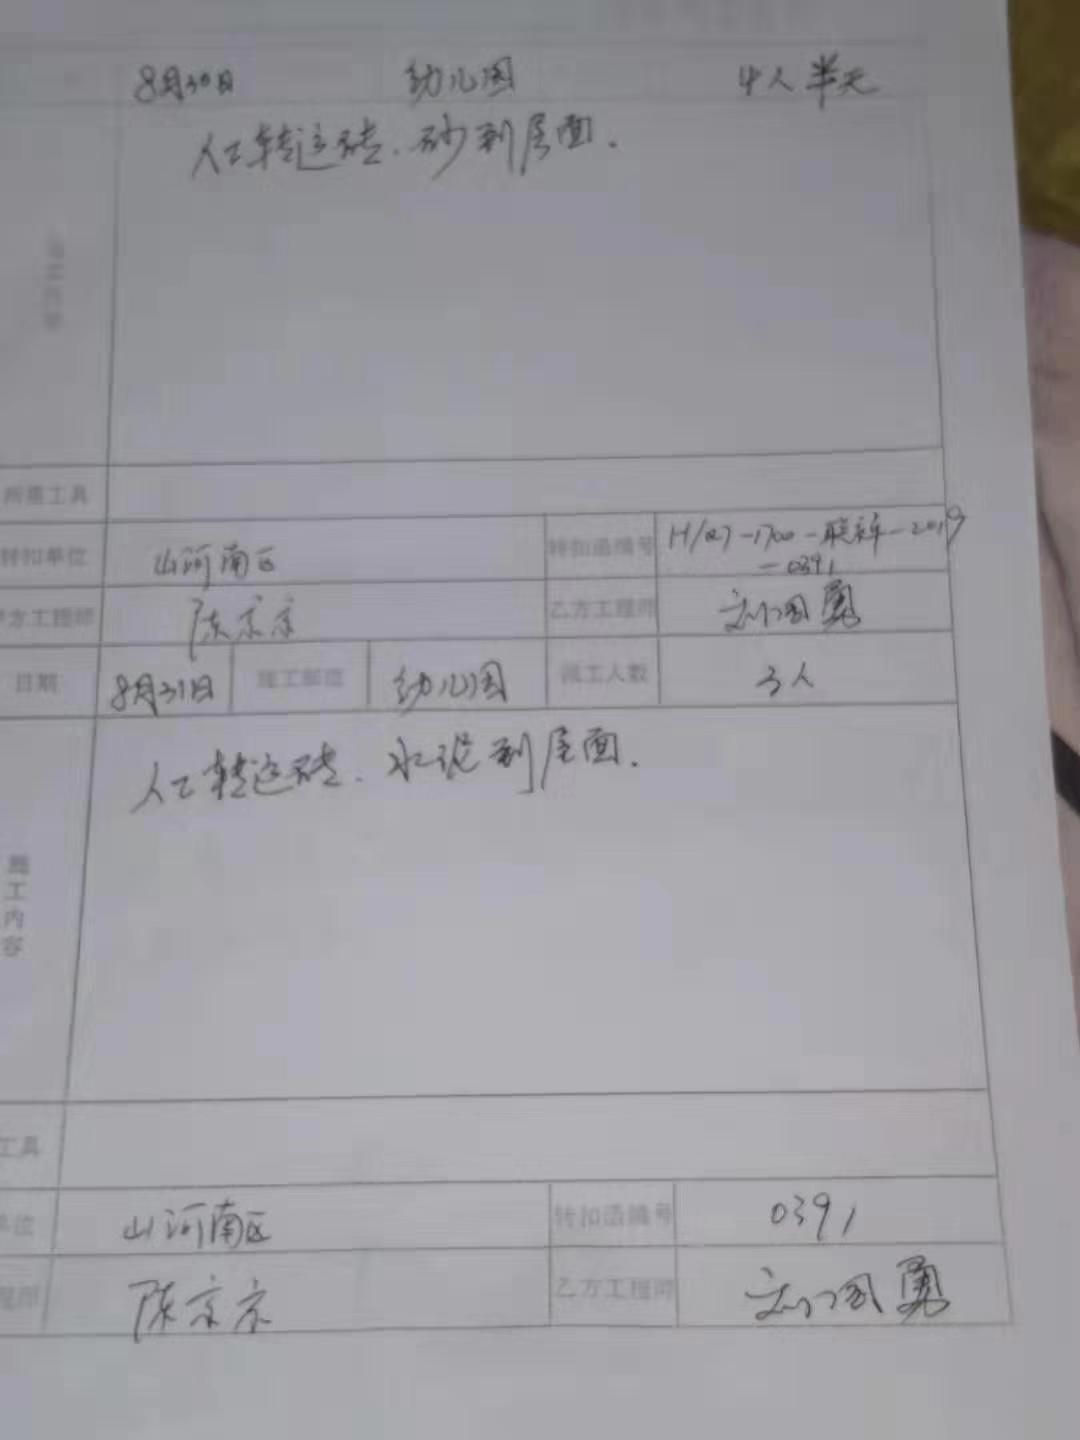 8月30日 幼儿园 4人半天
人工转运砖、砂到屋面.
施工内容
所需工具
转扣单位 山河南区 转扣函编号 H/QJ-1700-联系单-2019-0391
甲方工程师 陈京京 乙方工程师 刘国勇
日期 8月31日 施工部位 幼儿园 派工人数 3人
人工转运砖、水泥到屋面.
施工内容
工具
单位 山河南区 转扣函编号 0391
程师 陈京京 乙方工程师 刘国勇